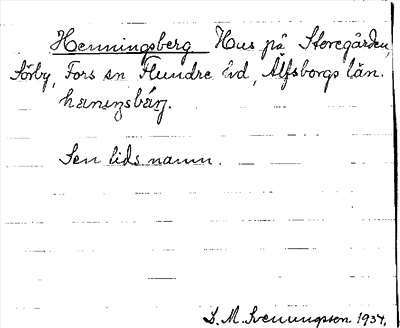 Henningsberg Hus på Storegården,
Sörby, Fors sn Flundre hd, Älfsborgs län.
Sen tids namn.
S. M. Svenningsson 1934.